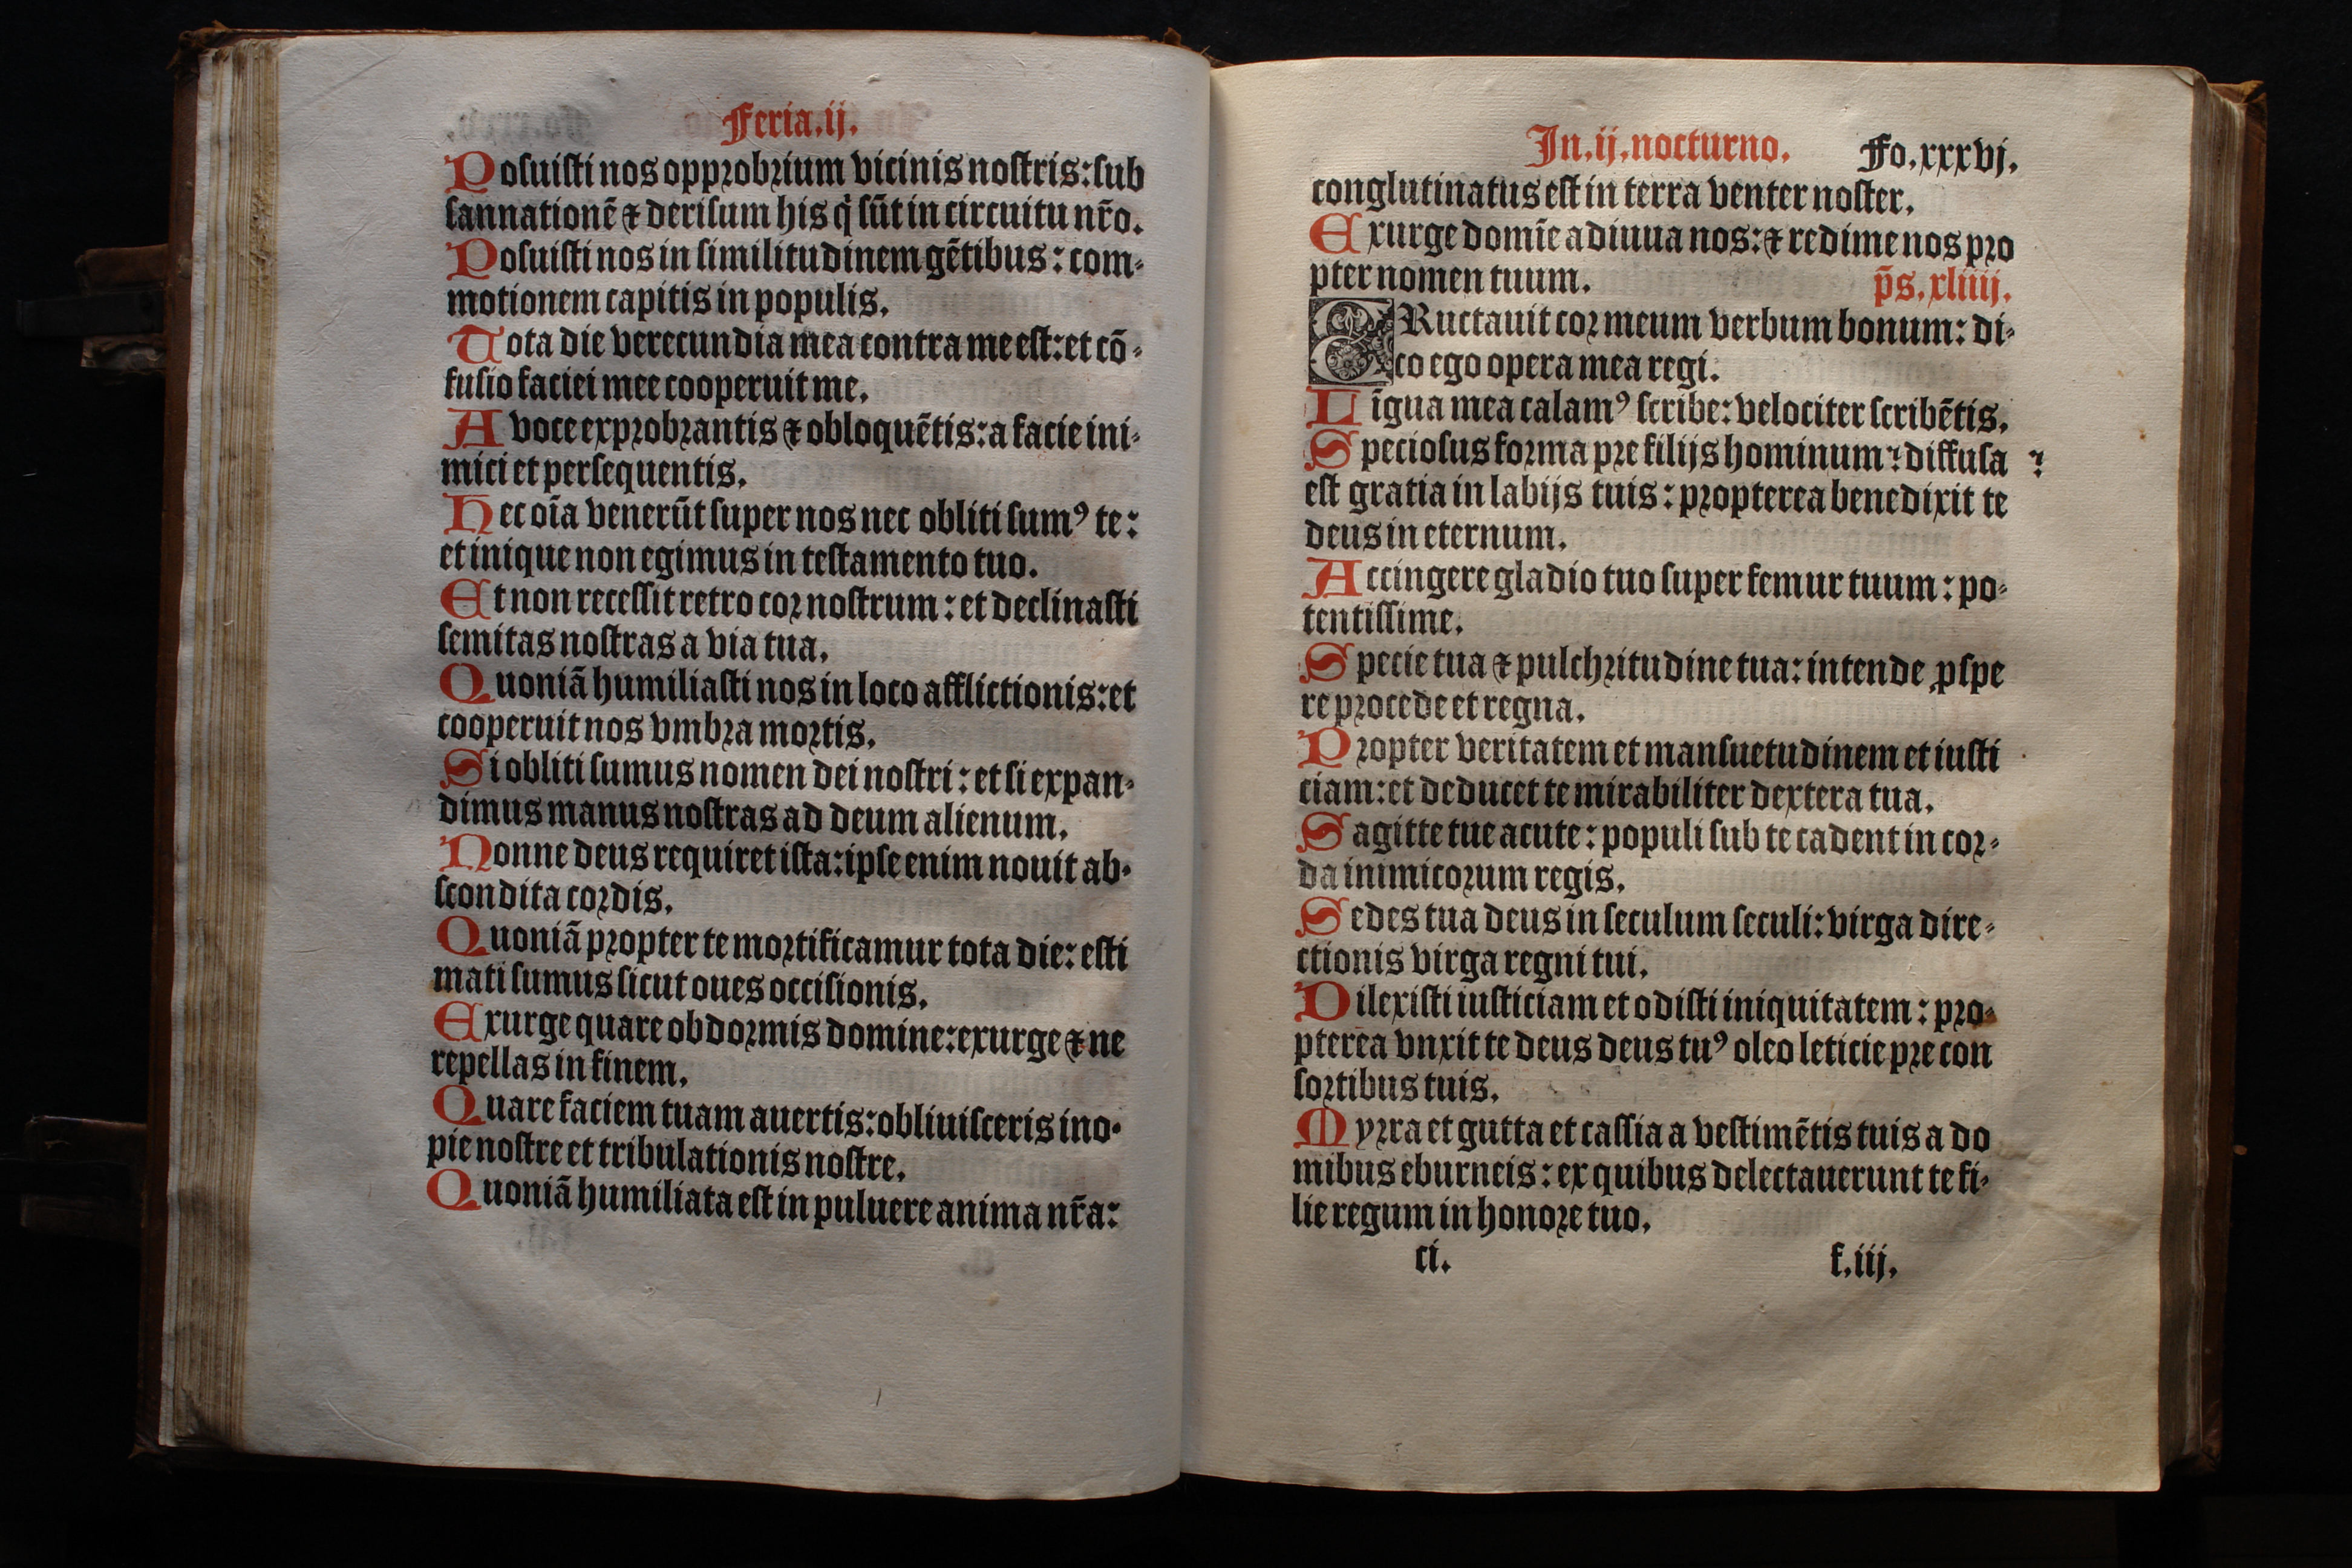 Feria.ij.
Posuisti nos opprobrium vicinis nostris: sub
sannationē ⁊ derisum his q̇ sūt in circuitu nr̄o.
Posuisti nos in similitudinem gētibus: com-
motionem capitis in populis.
Tota die verecundia mea contra me est: et cō-
fusio faciei mee cooperuit me.
A voce exprobrantis ⁊ obloquētis: a facie ini-
mici et persequentis.
Hec oīa venerūt super nos nec obliti sumꝰ te:
et inique non egimus in testamento tuo.
Et non recessit retro cor nostrum: et declinasti
semitas nostras a via tua.
Quoniā humiliasti nos in loco afflictionis: et
cooperuit nos vmbra mortis.
Si obliti sumus nomen dei nostri: et si expan-
dimus manus nostras ad deum alienum.
Nonne deus requiret ista: ipse enim nouit ab-
scondita cordis.
Quoniā propter te mortificamur tota die: esti
mati sumus sicut oues occisionis.
Exurge quare obdormis domine: exurge ⁊ ne
repellas in finem.
Quare faciem tuam auertis: obliuisceris ino-
pie nostre et tribulationis nostre.
Quoniā humiliata est in puluere anima nr̄a:
In.ij.nocturno. Fo.xxxvj.
conglutinatus est in terra venter noster.
Exurge domīe adiuua nos: ⁊ redime nos pro
pter nomen tuum. p̄s.xliiij.
ERuctauit cor meum verbum bonum: di-
co ego opera mea regi.
Līgua mea calamꝰ scribe: velociter scribētis.
Speciosus forma pre filijs hominum: diffusa
est gratia in labijs tuis: propterea benedixit te
deus in eternum.
Accingere gladio tuo super femur tuum: po-
tentissime.
Specie tua ⁊ pulchritudine tua: intende ꝓspe
re procede et regna.
Propter veritatem et mansuetudinem et iusti
ciam: et deducet te mirabiliter dextera tua.
Sagitte tue acute: populi sub te cadent in cor-
da inimicorum regis.
Sedes tua deus in seculum seculi: virga dire-
ctionis virga regni tui.
Dilexisti iusticiam et odisti iniquitatem: pro-
pterea vnxit te deus deus tuꝰ oleo leticie pre con
sortibus tuis.
Myrra et gutta et cassia a vestimētis tuis a do
mibus eburneis: ex quibus delectauerunt te fi-
lie regum in honore tuo.
ci. f.iij.